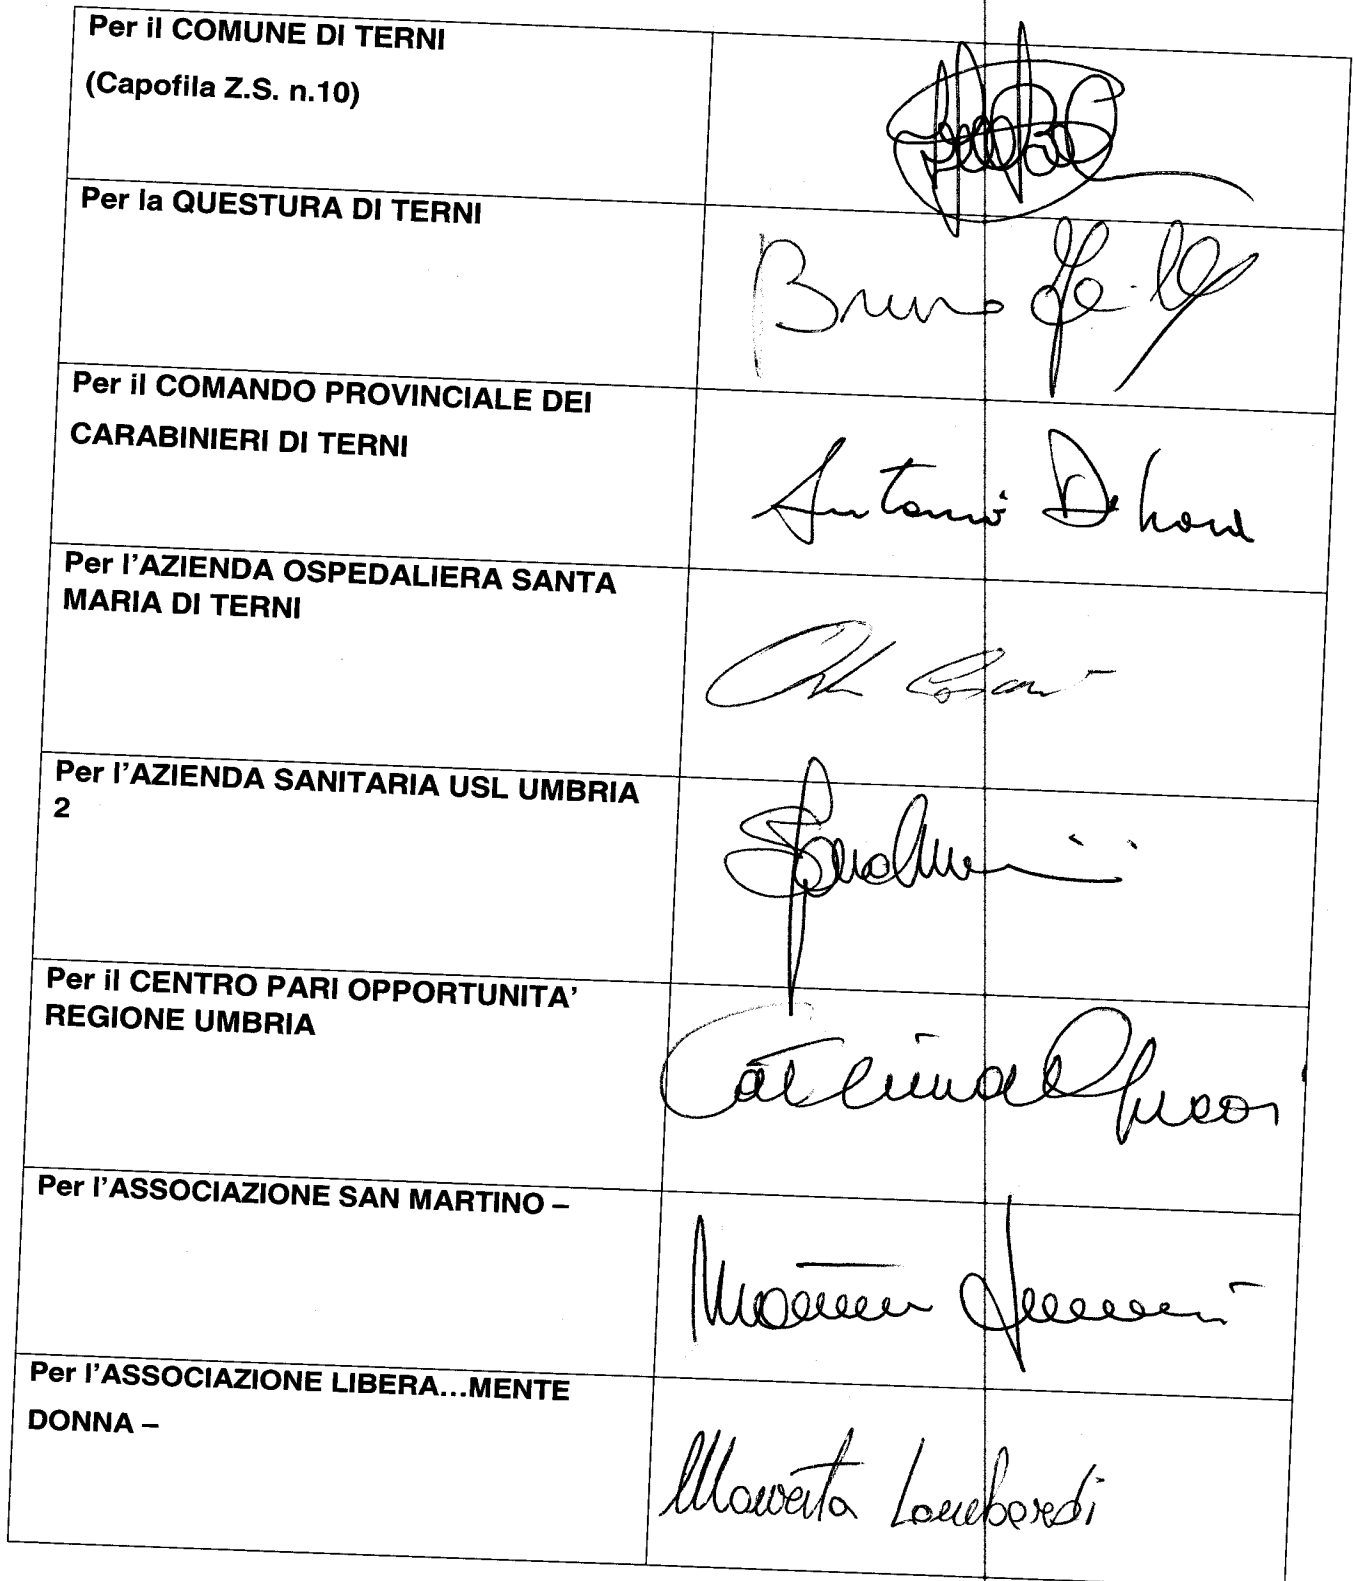 Per il COMUNE DI TERNI
(Capofila Z.S. n.10)
Per la QUESTURA DI TERNI
Bruno
Per il COMANDO PROVINCIALE DEI
CARABINIERI DI TERNI
Antonio De
Per l'AZIENDA OSPEDALIERA SANTA
MARIA DI TERNI
Per l'AZIENDA SANITARIA USL UMBRIA
2
Per il CENTRO PARI OPPORTUNITA'
REGIONE UMBRIA
Caterina
Per l'ASSOCIAZIONE SAN MARTINO –
Per l'ASSOCIAZIONE LIBERA...MENTE
DONNA –
Lombardi